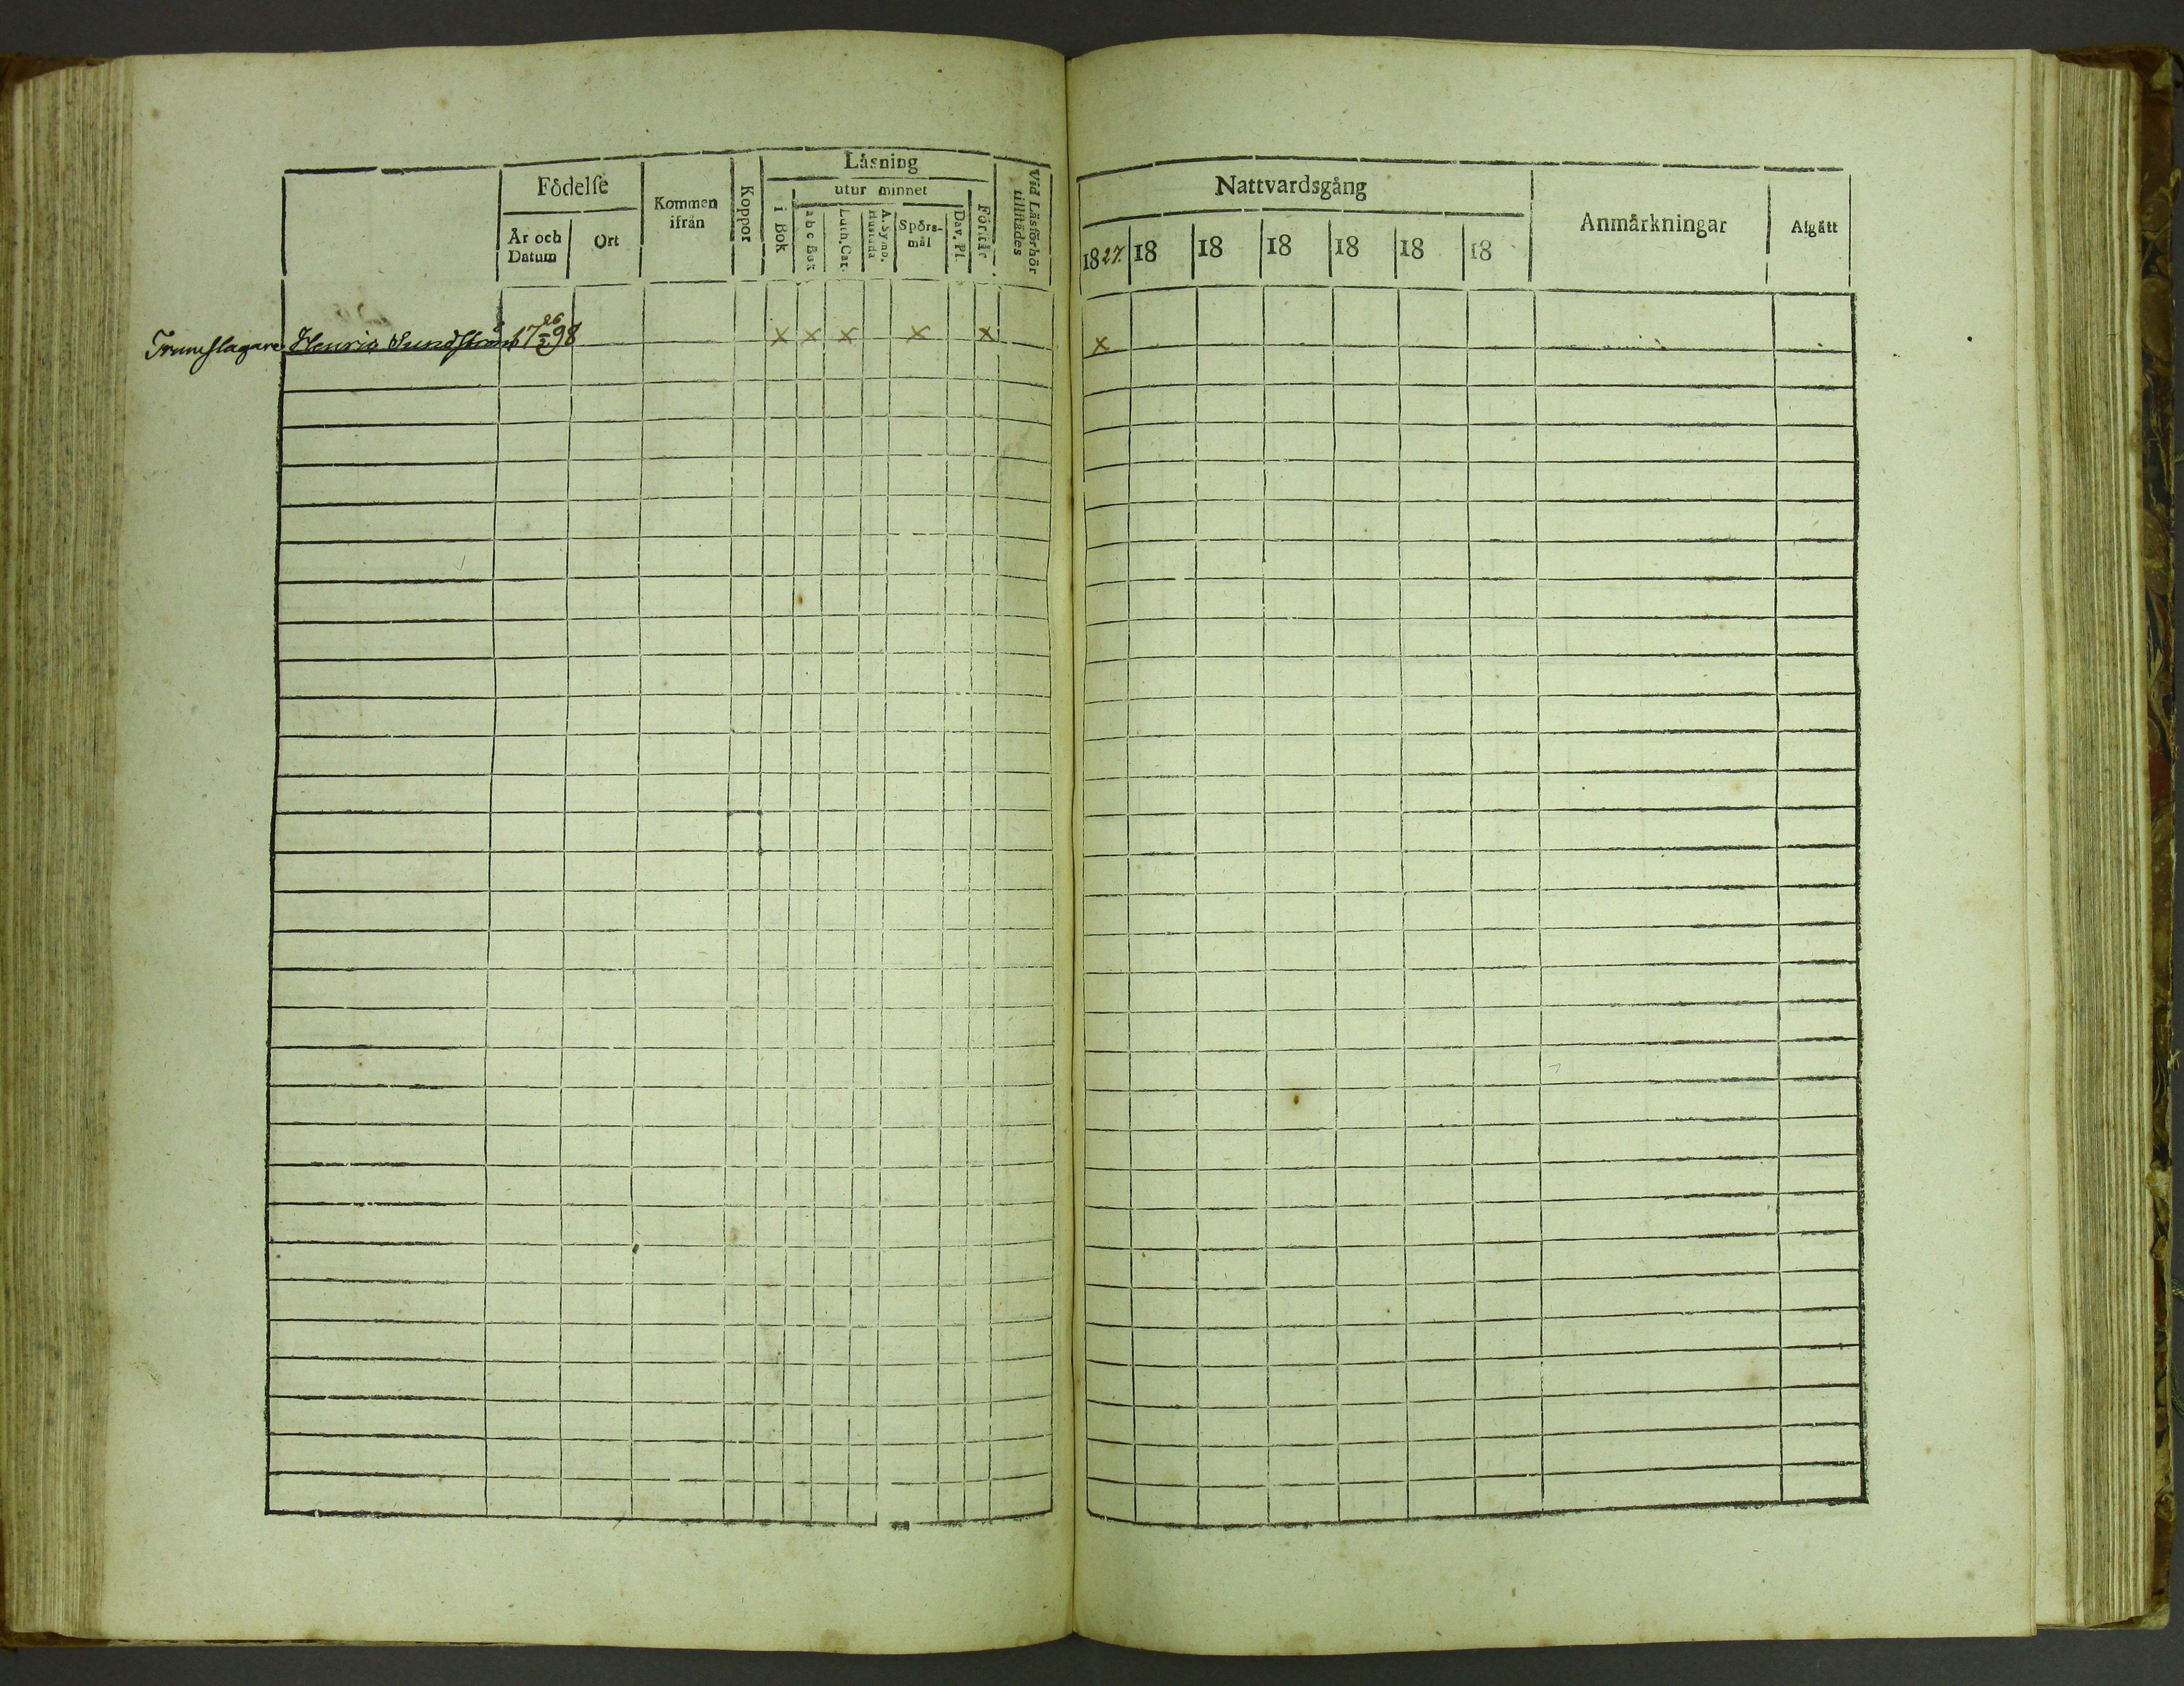 Födelse
År och Datum
Ort
Kommen ifrån
Koppor
Låsning
i Bok
utur minnet
a b c Bok
Luth. Cat.
A. Symb. Hustafla
Spörs-mål
Dav. Ps.
Förstår
Vid Läsförhör tillstädes
Nattvardsgång
1827. 18 18 18 18 18 18
Anmårkningar
Afgått
Trumslagare Henric Sundström 17 26/2 98 x x x x x x